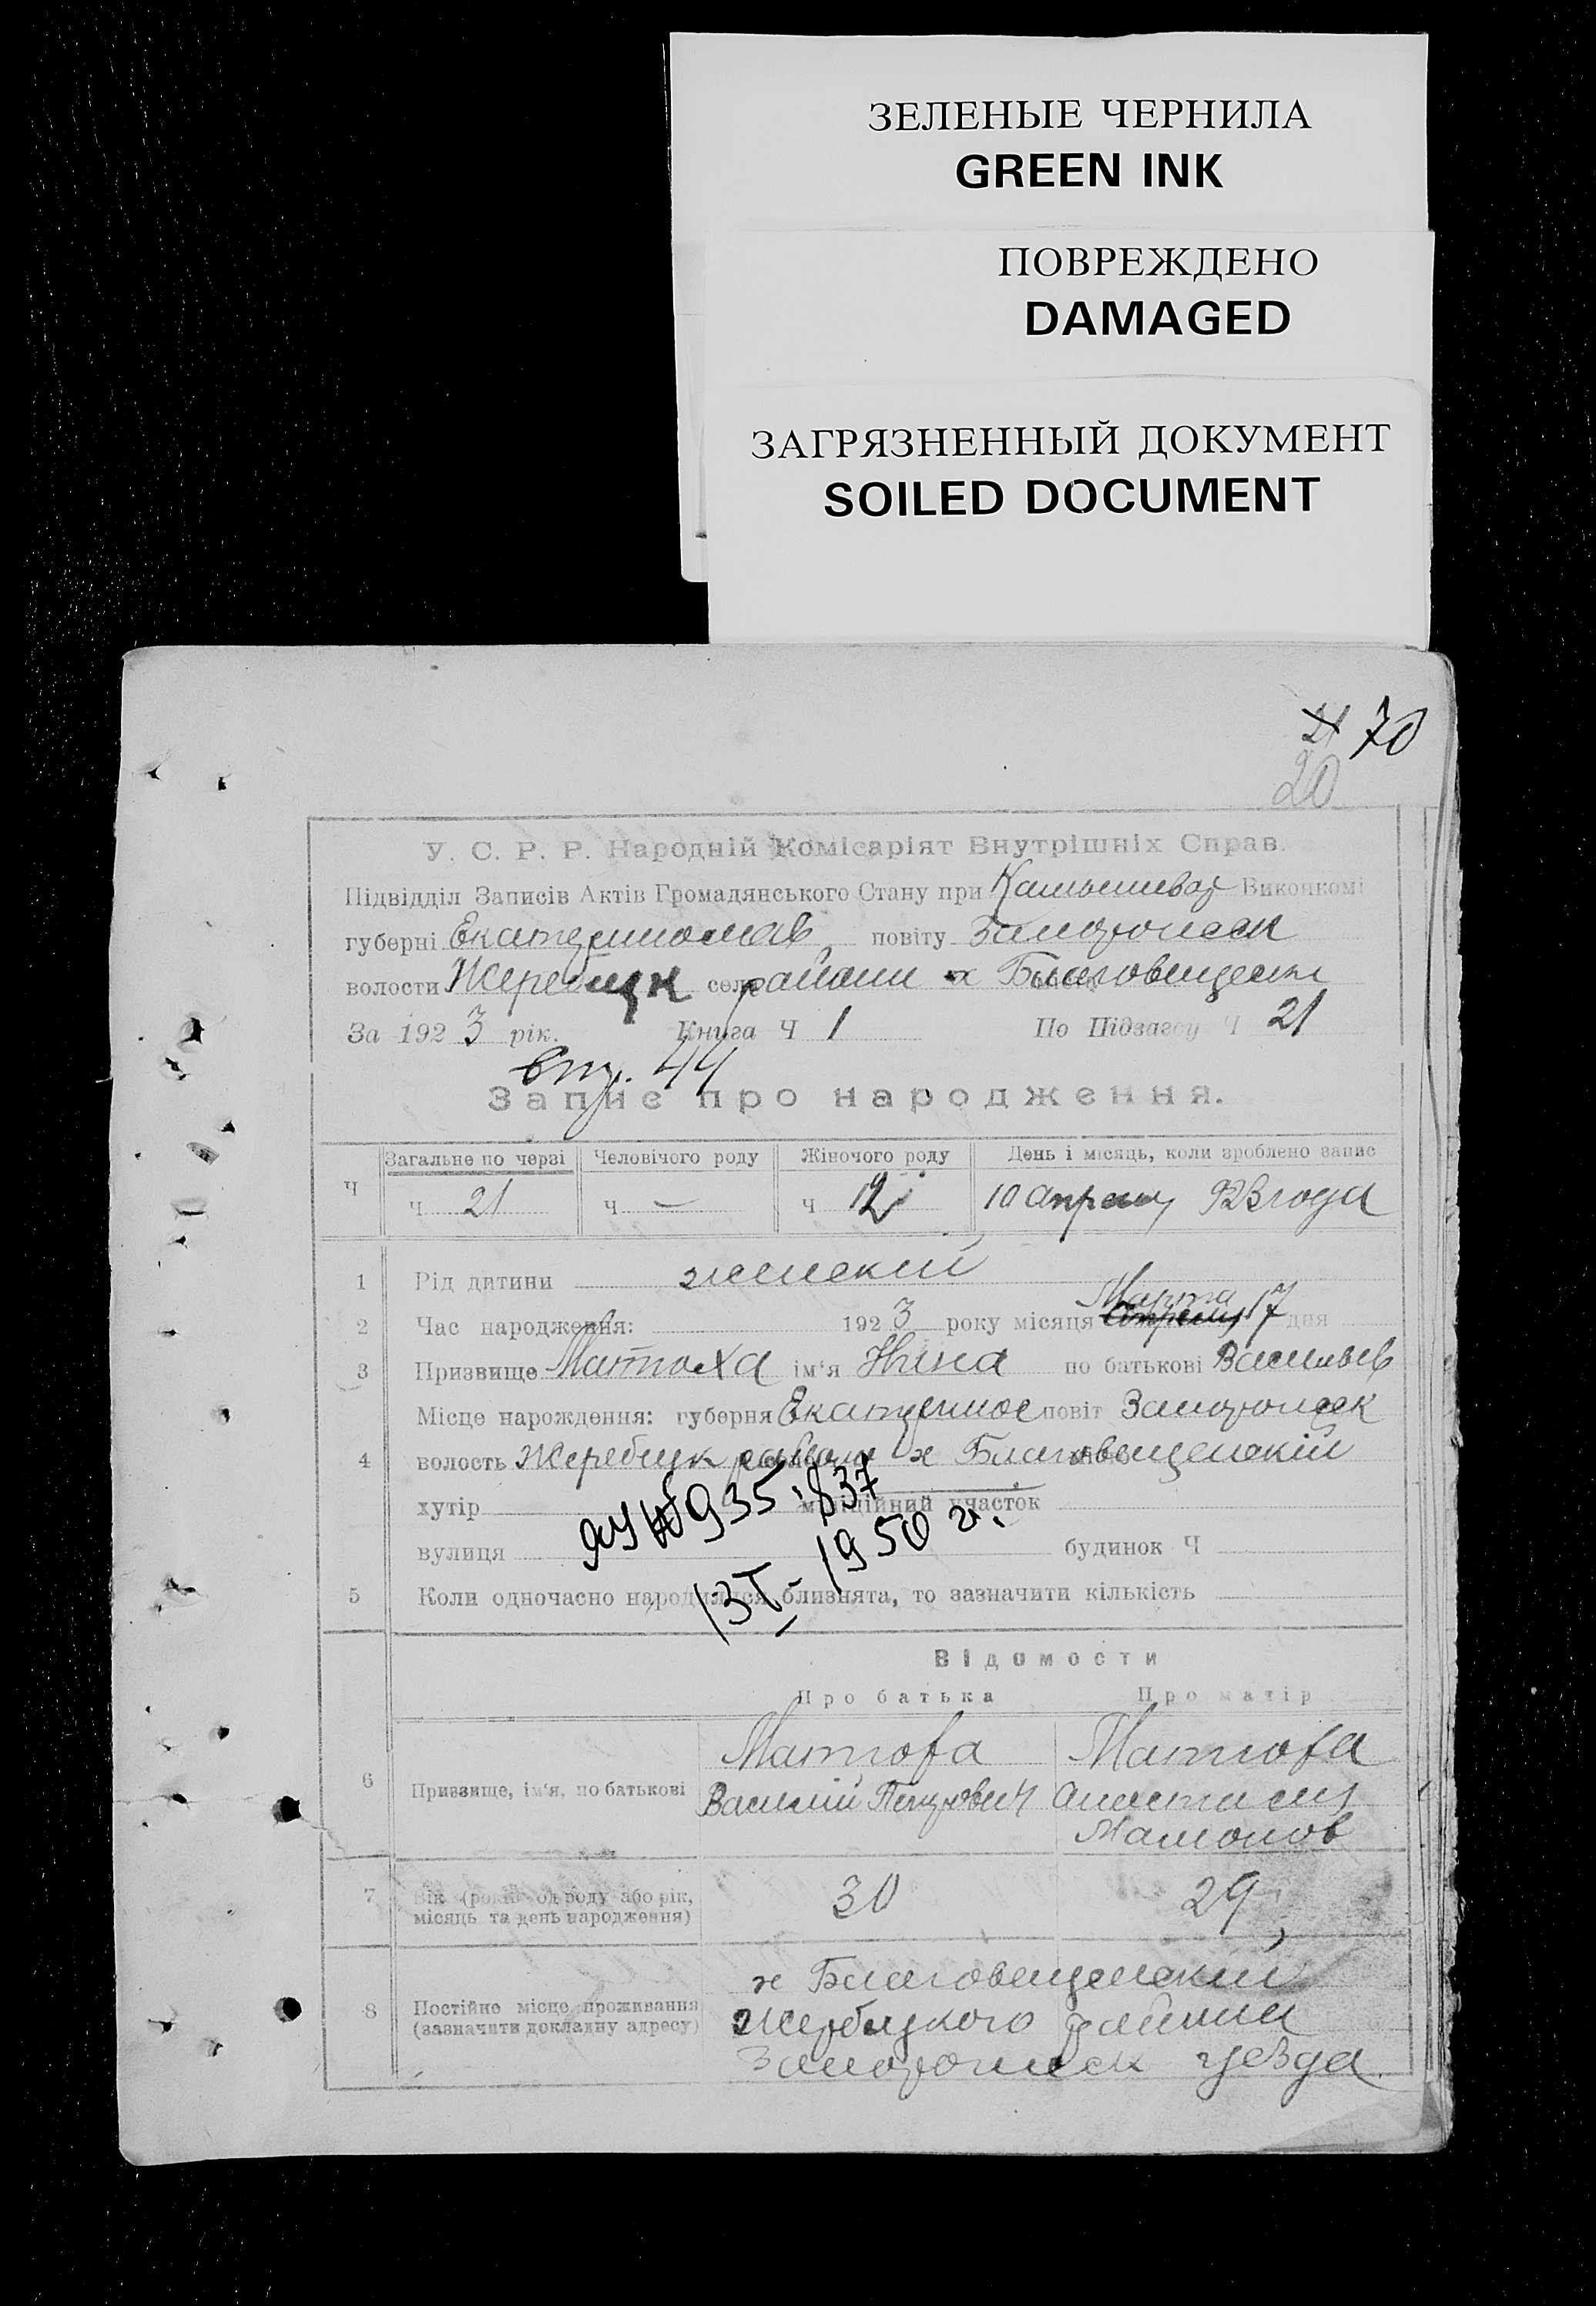 ЗЕЛЕНЫЕ ЧЕРНИЛА
GREEN INK
ПОВРЕЖДЕНО
DAMAGED
ЗАГРЯЗНЕННЫЙ ДОКУМЕНТ
SOILED DOCUMENT
21 70
20
У. С. Р. Р. Народній Комісаріят Внутрішніх Справ.
Підвідділ Записів Актів Громадянського Стану при Камышеват Виконкомі
губерні Екатеринослав повіту Запорожск
волости Жеребецк района х Благовещенск
За 1923 рік. Книга Ч 1 По Підзагсу Ч 21
стр. 44
Запис про народження.
Ч Загальне по черзі Человічого роду Жіночого роду День і місяць, коли зроблено запис
Ч 21 Ч — Ч 12 10 апреля 923 года
1 Рід дитини женский
Марта
2 Час народження: 1923 року місяця апреля 17 дня
3 Призвище Матюха ім'я Нина по батькові Васильев
Місце нарождення: губерня Екатеринос повіт Запорожск
4 волость Жеребецк района х Благовещенский
хутір міліційний участок
вулиця будинок Ч
935837
13 I - 1950 г.
5 Коли одночасно народилися близнята, то зазначити кількість
Відомости
Про батька Про матір
Матюха Матюха
6 Призвище, ім'я, по батькові Василий Петрович Анастасия
Мамонов
7 Вік (років од роду або рік, місяць та день народження) 30 29
х Благовещенский
8 Постійне місце проживання (зазначити докладну адресу) Жеребецкого района
Запорожск уезда